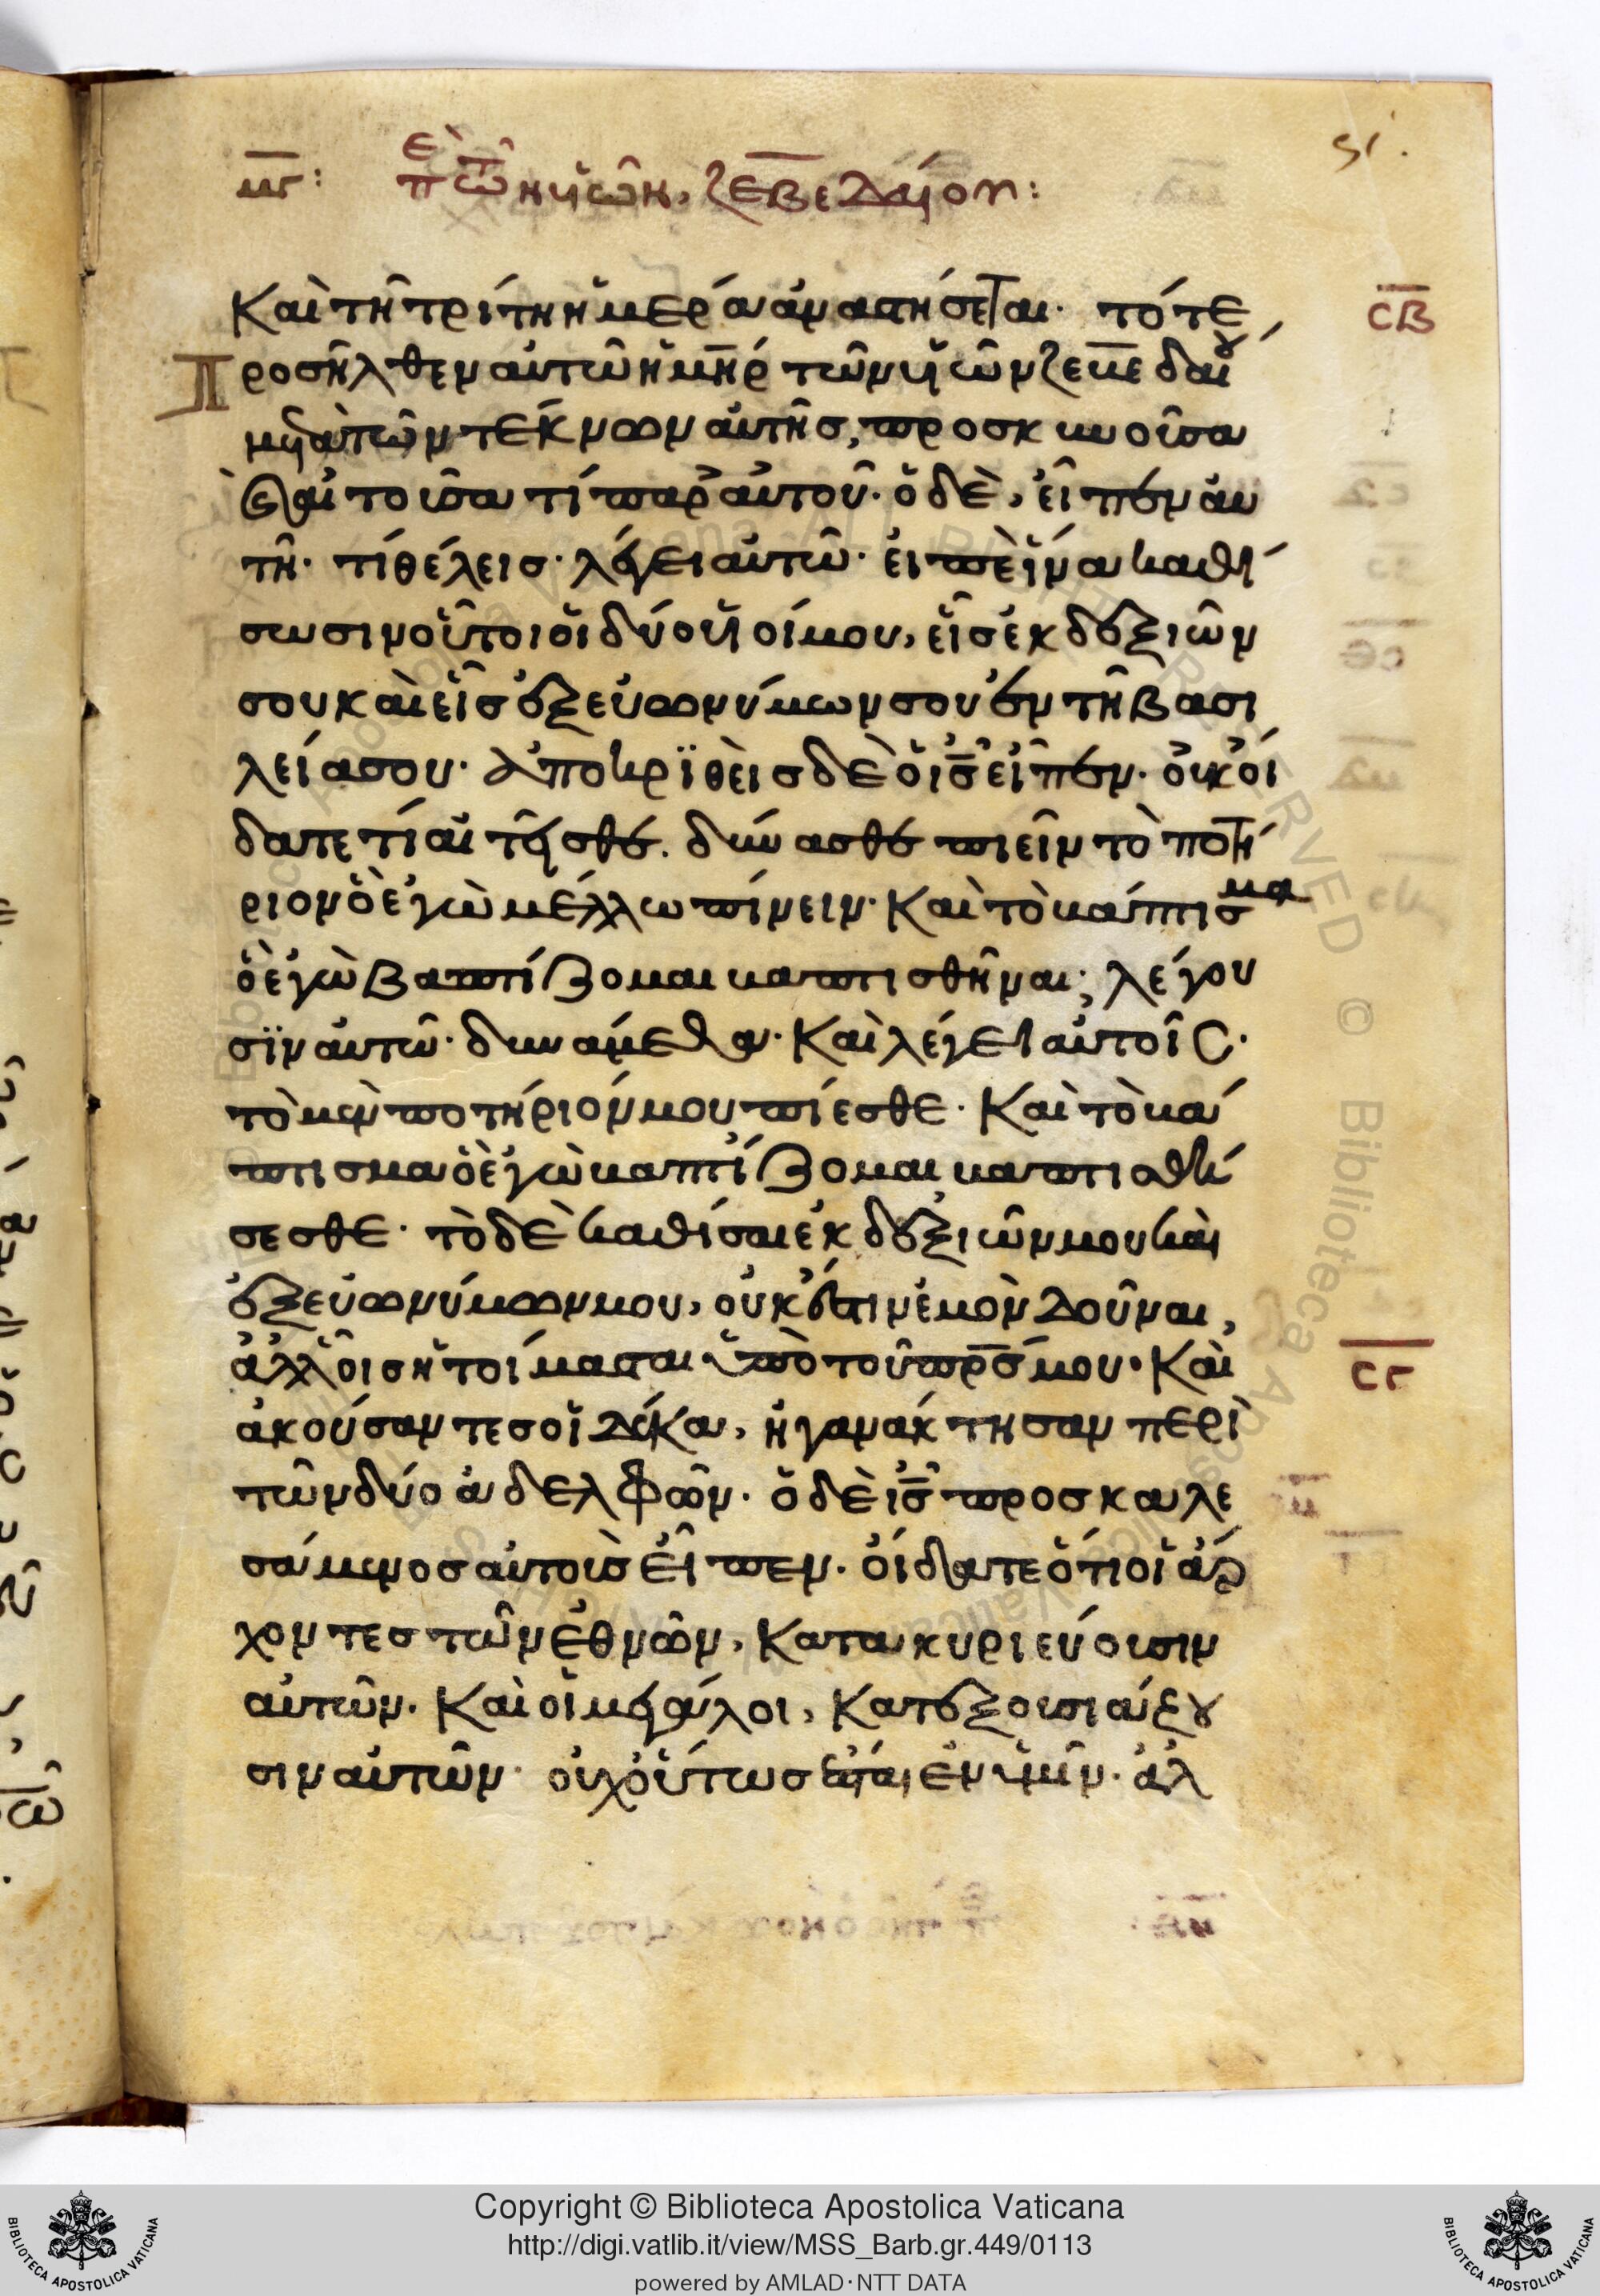 ϛι.
μγ: περὶ τῶν υἱῶν, ζεβεδαίου:
Καὶ τῆ τρίτη ἡμέρα ἀναστήσεται· τότε
σβ
Προσῆλθεν αὐτῶ ἡ μηρ τῶν υἱῶν ζεβεδαίου
μετὰ τῶν τέκνων αὐτῆσ, προσκυνοῦσα
καὶ αἰτοῦσα τί παρ' αὐτοῦ· ὁ δὲ, εἶπεν αὐ
τῆ· τί θέλεισ· λέγει αὐτῶ· εἰπὲ ἵνα καθί
σωσιν οὗτοι οἱ δύο υἱοί μου, εἷσ ἐκ δεξιῶν
σου καὶ εἷσ ἐξ εὐωνύμων σου ἐν τῆ βασι
λεία σου· ἀποκριθεὶσ δὲ ὁ ισ εἶπεν· οὐκ οἴ
δατε τί αἰτεῖσθε. δύνασθε πιεῖν τὸ ποτή
ριον ὃ ἐγὼ μέλλω πίνειν· Καὶ τὸ βάπτισμα
ὃ ἐγὼ βαπτίζομαι βαπτισθῆναι; λέγου
σϊν αὐτῶ· δυνάμεθα· Καὶ λέγει αὐτοῖσ·
τὸ μὲν ποτήριόν μου πίεσθε· Καὶ τὸ βά
πτισμα ὃ ἐγὼ βαπτίζομαι βαπτισθή
σεσθε· τὸ δὲ καθίσαι ἐκ δεξιῶν μου καὶ
ἐξ εὐωνύμων μου, οὐκ ἔστιν ἐμὸν δοῦναι,
ἀλλ' οἷσ ἡτοίμασται ὑπὸ τοῦ πρσ μου· Καὶ
σγ
ἀκούσαντεσ οἱ δέκα, ἠγανάκτησαν περὶ
τῶν δύο ἀδελφῶν· ὁ δὲ ισ προσκαλε
σάμενοσ αὐτοὺσ εἶπεν· οἴδατε ὅτι οἱ ἄρ
χοντεσ τῶν ἐθνῶν, Κατακυριεύουσιν
αὐτῶν· Καὶ οἱ μεγάλοι, Κατεξουσιάζου
σιν αὐτῶν· οὐχ οὕτωσ ἔσται ἐν ὑμῖν· ἀλ
Copyright © Biblioteca Apostolica Vaticana
http://digi.vatlib.it/view/MSS_Barb.gr.449/0113
powered by AMLAD·NTT DATA